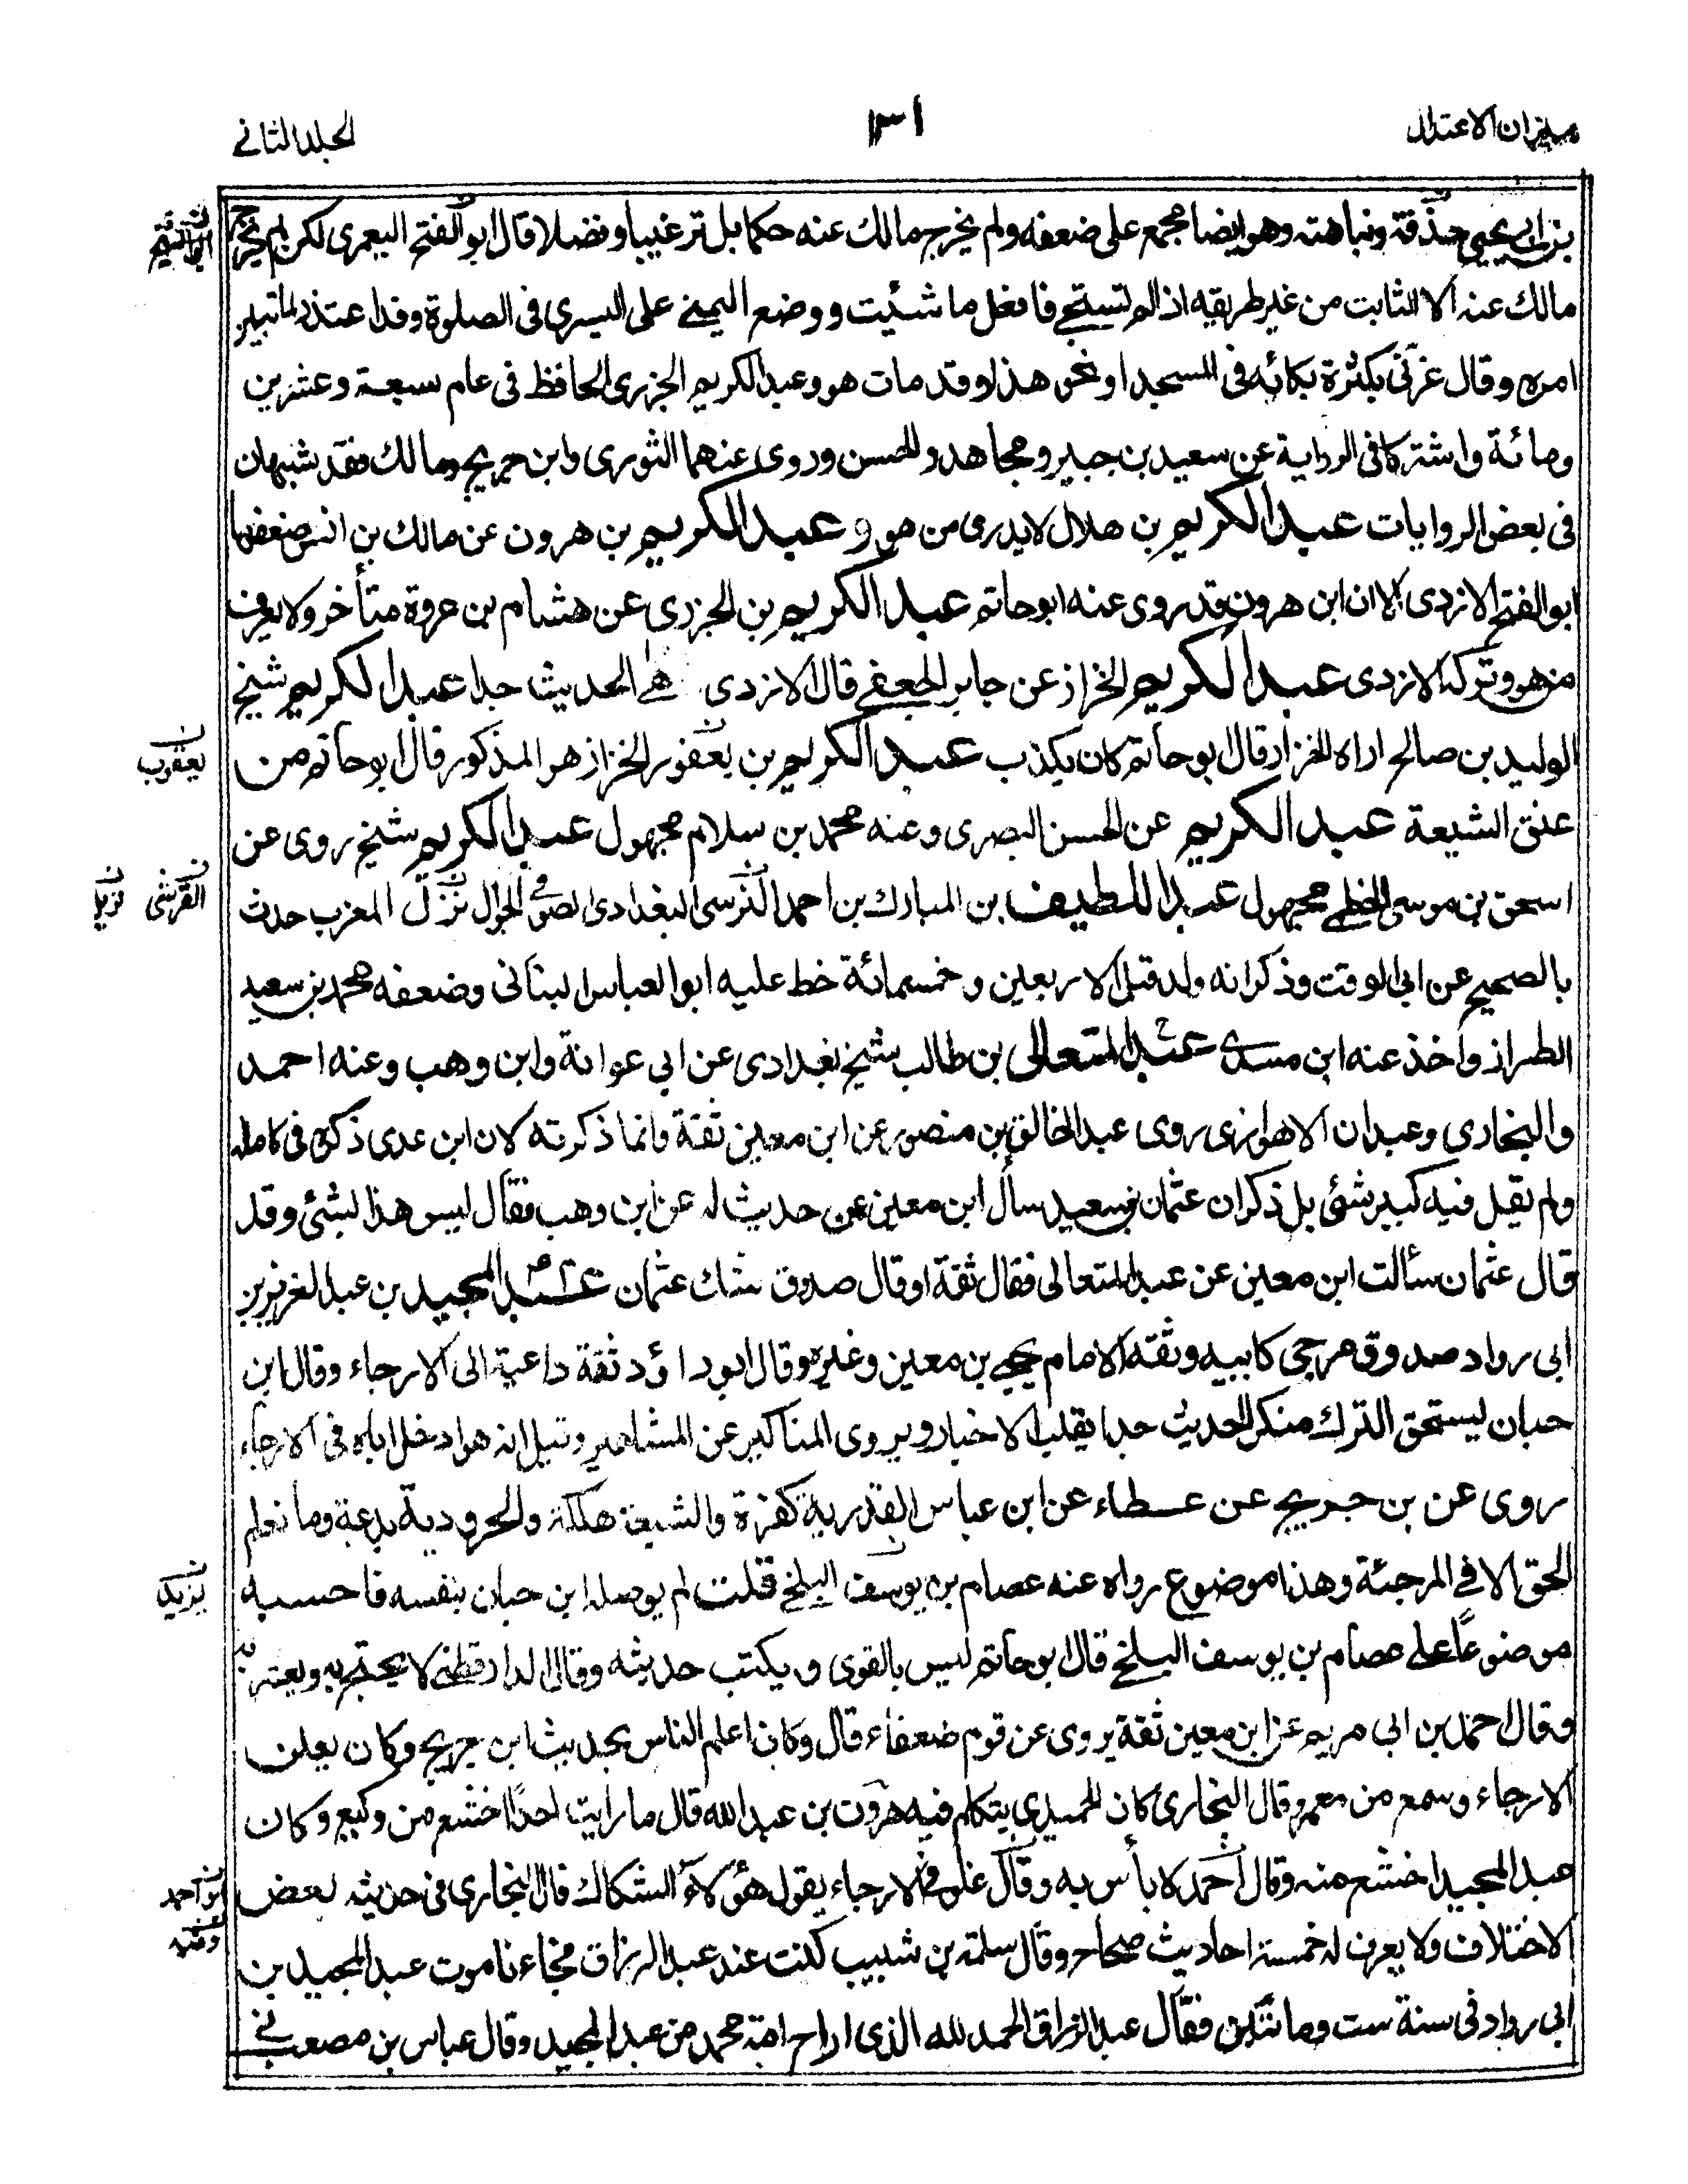 ميزان الاعتدال
١٣١
الجلد الثاني
بن ابي يحيى حذقة ونباهته وهو ايضا مجمع على ضعفه ولم يخرج مالك عنه حكما بل ترغيبا وفضلا قال ابو الفتح اليعمرى لكن لم يخرج
ابو الشيخ
مالك عنه الا الثابت من غير طريقه اذا لم تستحي فافعل ما شئت ووضع اليمنى على اليسرى فى الصلوة وقد اعتذر لما تبين
امره وقال غرنى بكثرة بكائه فى المسجد او نحو هذا وقد مات هو وعبد الكريم الجزرى الحافظ فى عام سبعة وعشرين
ومائة واشتركا فى الرواية عن سعيد بن جبير ومجاهد والحسن وروى عنهما الثورى وابن جريج ومالك فقد يشبهان
فى بعض الروايات عبد الكريم بن هلال لا يدرى من هو و عبد الكريم بن هرون عن مالك بن انس ضعفهما
ابو الفتح الازدى الا ان ابن هرون قد روى عنه ابو حاتم عبد الكريم بن الجزرى عن هشام بن عروة متأخر ولا يعرف
من هو وتركه الازدى عبد الكريم الخراز عن جابر الجعفى قال الازدى واهى الحديث جدا عبد الكريم شيخ
الوليد بن صالح اراه الخراز قال ابو حاتم كان يكذب عبد الكريم بن يعفور الخراز هو المذكور قال ابو حاتم من
يعقوب
عتق الشيعة عبد الكريم عن الحسن البصرى وعنه محمد بن سلام مجهول عبد الكريم شيخ روى عن
اسحق بن موسى الخطمى مجهول عبد اللطيف بن المبارك بن احمد النرسى البغدادى الصوفى الجوال نزل المغرب حدث
القرشى نزيل
بالصحيح عن ابى الوقت وذكر انه ولد قبل الاربعين وخمسمائة خط عليه ابو العباس البنانى وضعفه محمد بن سعيد
الطراز واخذ عنه ابن مسدى عبد المتعالى بن طالب شيخ بغدادى عن ابى عوانة وابن وهب وعنه احمد
والبخارى وعبدان الاهوازى روى عبد الخالق بن منصور عن ابن معين ثقة وانما ذكرته لان ابن عدى ذكره فى كامله
ولم يقل فيه كبير شئ بل ذكر ان عثمان بن سعيد سأل ابن معين عن حديث له عن ابن وهب فقال ليس هذا بشئ وقد
قال عثمان سألت ابن معين عن عبد المتعالى فقال ثقة او قال صدوق شك عثمان عبد المجيد بن عبد العزيز بن
ابى رواد صدوق مرجئ كابيه وثقه الامام يحيى بن معين وغيره وقال ابو داؤد ثقة داعية الى الارجاء وقال ابن
حبان يستحق الترك منكر الحديث جدا يقلب الاخبار ويروى المناكير عن المشاهير وقيل انه هو ادخل اباه فى الارجاء
روى عن بن جريج عن عطاء عن ابن عباس القدرية كفرة والشيعة هلكة والحرورية بدعة وما نعلم
الحق الا فى المرجئة وهذا موضوع رواه عنه عصام بن يوسف البلخى قلت لم يوصله ابن حبان بنفسه فاحسبه
يزيد
موضوعًا على عصام بن يوسف البلخى قال ابو حاتم ليس بالقوى ويكتب حديثه وقال الدارقطنى لا يحتج به ويعتبر به
وقال احمد بن ابى مريم عن ابن معين ثقة يروى عن قوم ضعفاء قال وكان اعلم الناس بحديث ابن جريج وكان يعلن
الارجاء وسمع من معمر وقال البخارى كان الحميدى يتكلم فيه هرون بن عبد الله قال ما رايت احدًا اخشع من وكيع وكان
عبد المجيد اخشع منه وقال احمد لا بأس به وقال غلو فى الارجاء يقول هؤلاء الشكاك قال البخارى فى حديثه بعض
ابو احمد
وفيه
الاختلاف ولا يعرف له خمسة احاديث صحاح وقال سلمة بن شبيب كنت عند عبد الرزاق فجاءنا موت عبد المجيد بن
ابى رواد فى سنة ست ومائتين فقال عبد الرزاق الحمد لله الذى اراح امة محمد من عبد المجيد وقال عباس بن مصعب فى